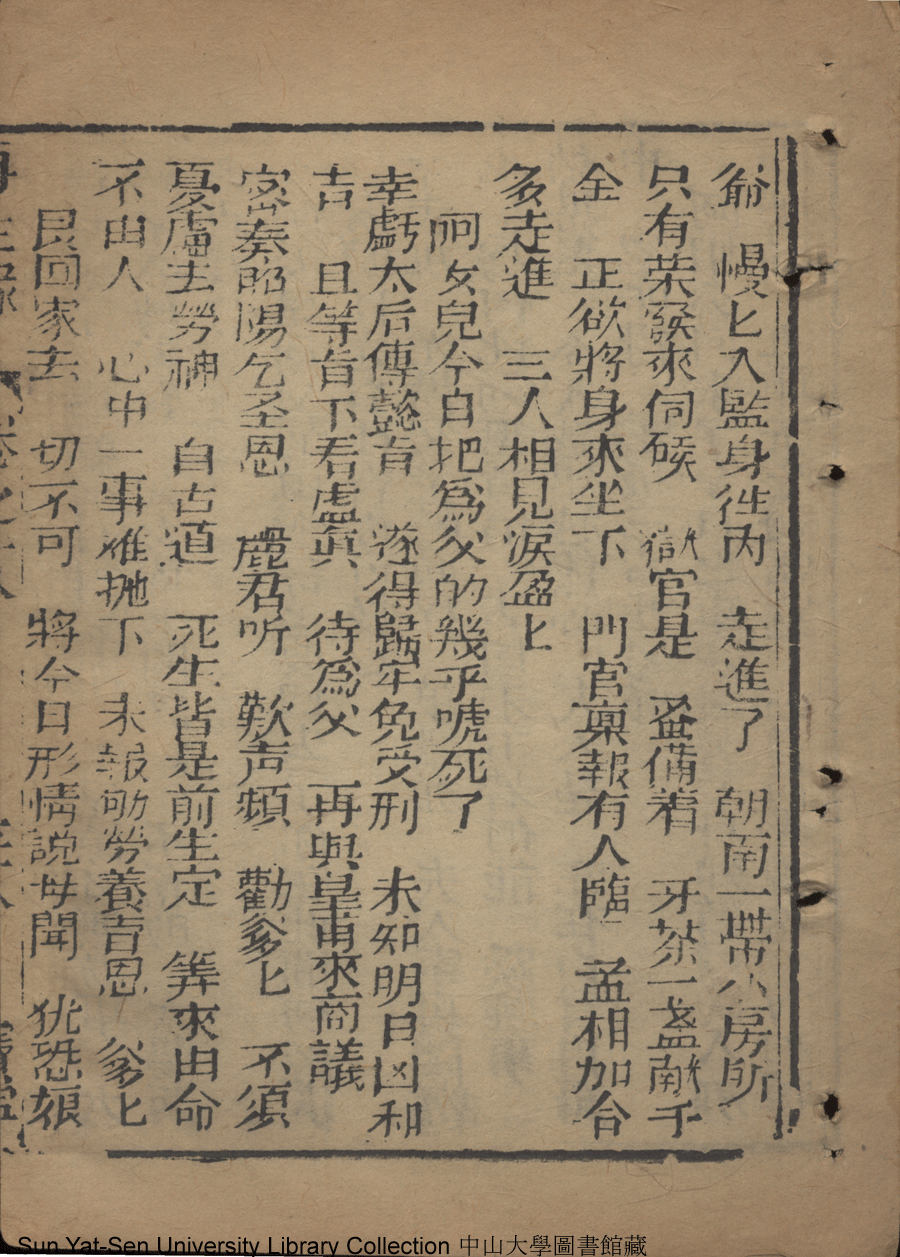 爺　慢匕入監身徃內　走進了　朝南一帶小房所
只有荣發來伺候　獄官是　蚤備着　牙茶一盞敵千
金　正欲將身來坐下　門官稟報有人臨　孟相加合
多走進　三人相見淚盈匕
　呵女兒今白把爲父的幾乎唬死了
幸虧太后傳懿旨　遂得歸牢免受刑　未知明日凶和
吉　且等旨下看虛眞　待爲父　再與皇甫來商議
密奏郎陽乞圣恩　麗君听　歎声頻　勸爹匕　不須
憂慮去勞神　自古道　死生皆是前生定　筭來由命
不由人　心中一事难抛下　未報劬勞養吉恩　爹匕
　艮回家去　切不可　將今日形情説母聞　犹恐娘
Sun Yat-Sen University Library Collection 中山大學圖書館藏